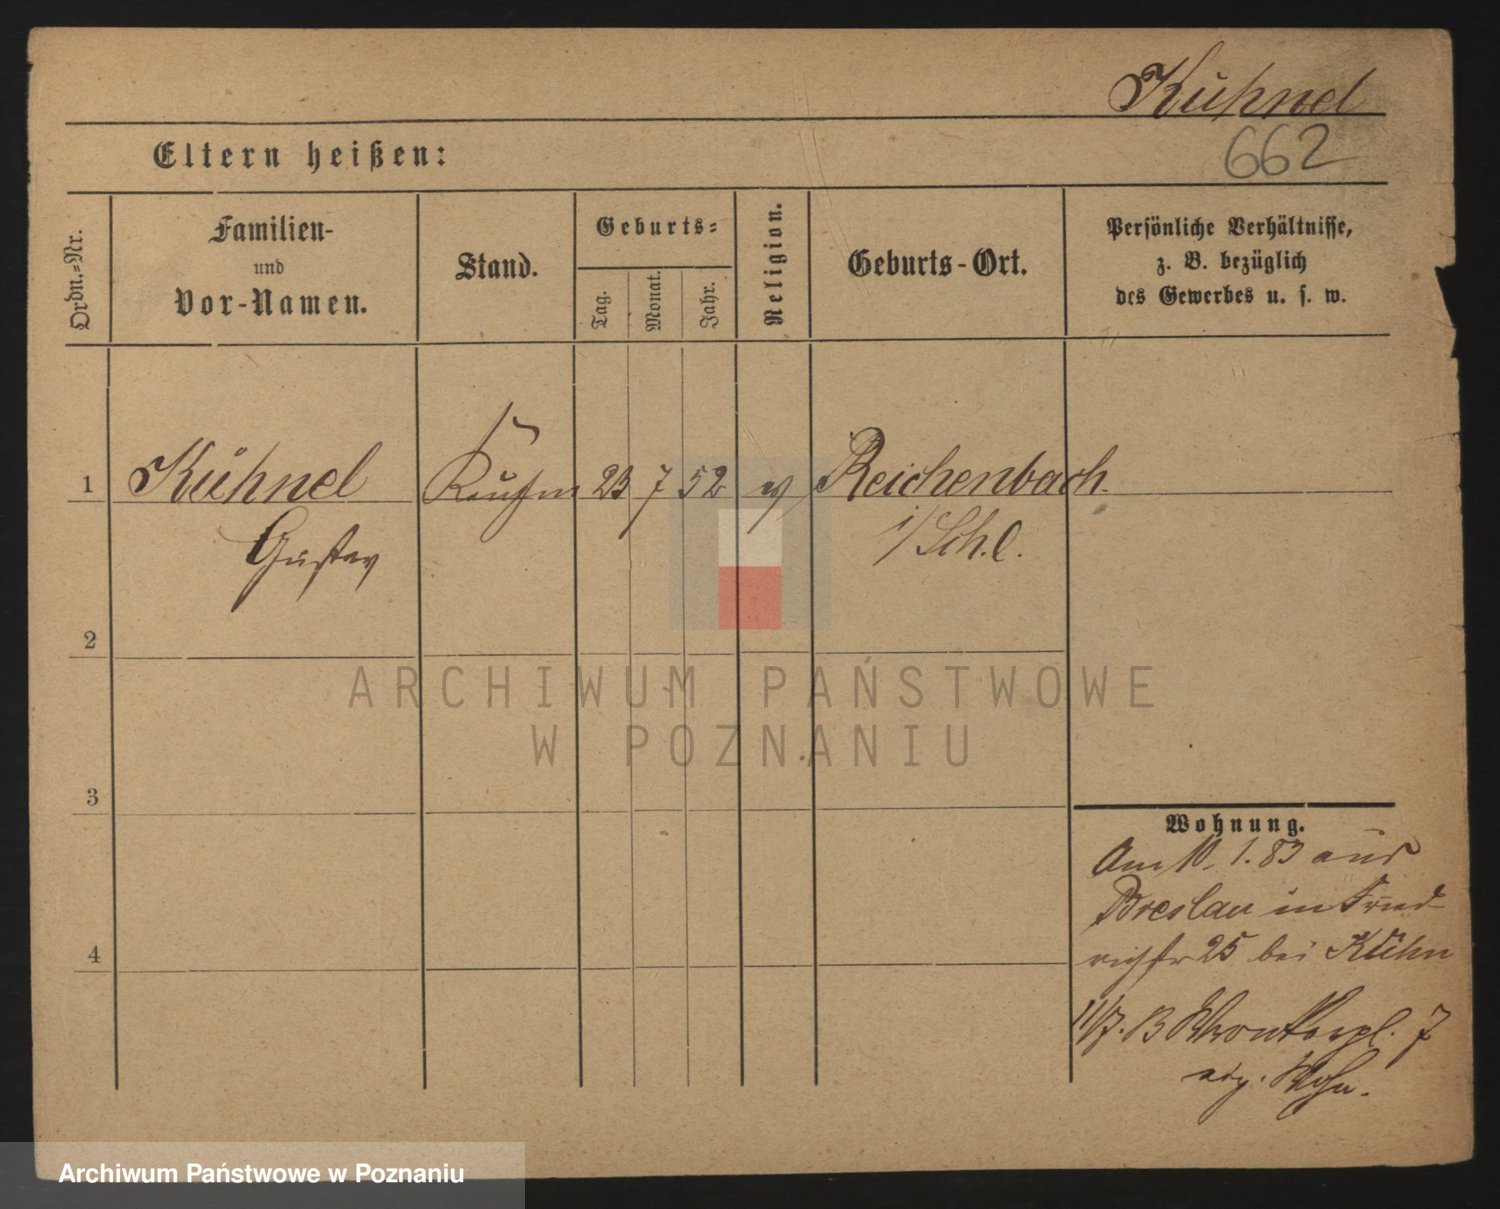 Kühnel
662
Eltern heißen:
Ordn.-Nr.
Familien-
und
Vor-Namen.
Stand.
Geburts-
Tag.
Monat.
Jahr.
Religion.
Geburts-Ort.
Persönliche Verhältnisse,
z. B. bezüglich
des Gewerbes u. s. w.
1 Kühnel Kaufm 23 7 52 ev Reichenbach
Gustav i/Schl.
2
3
4
Wohnung.
Am 10. 1. 83 aus
Breslau in Fried-
richstr 25 bei Kühn
11/7. B Wronkerpl. 7
Wohn.
ARCHIWUM PAŃSTWOWE
W POZNANIU
Archiwum Państwowe w Poznaniu